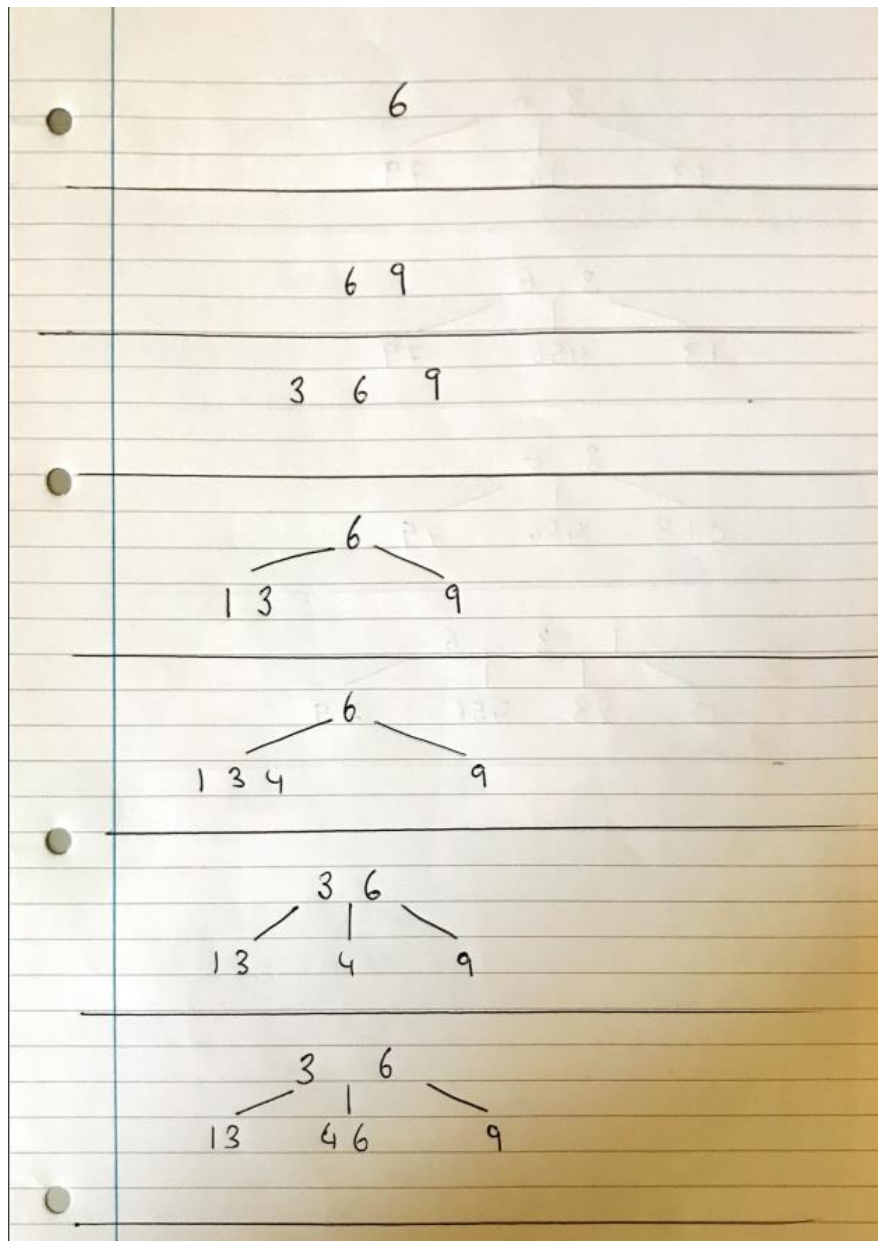 6
6 9
3 6 9
6
1 3 9
6
1 3 4 9
3 6
1 3 4 9
3 6
1 3 4 6 9